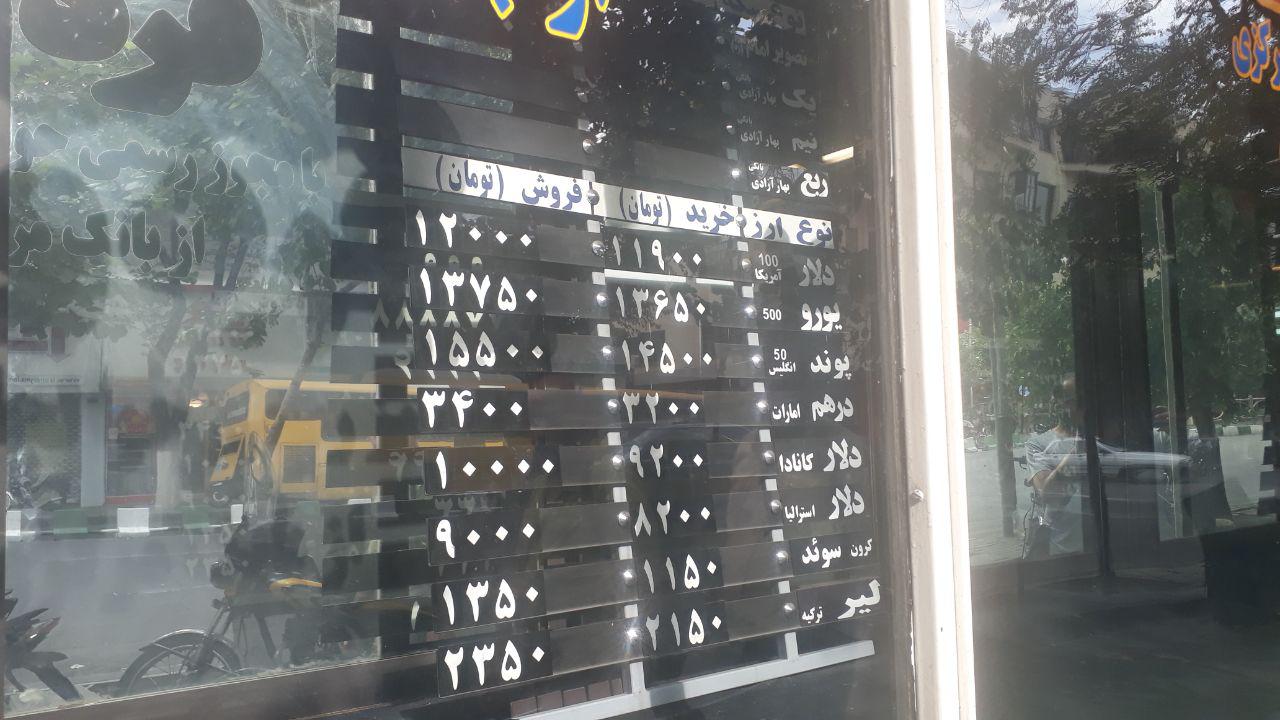 نوع
تصویر امام
یک بانکی بهار آزادی
نیم بانکی بهار آزادی
ربع بانکی بهار آزادی
نوع ارز خرید (تومان) فروش (تومان)
دلار 100 آمریکا ۱۱۹۰۰ ۱۲۰۰۰
یورو 500 ۱۳۶۵۰ ۱۳۷۵۰
پوند 50 انگلیس ۱۴۵۰۰ ۱۵۵۰۰
درهم امارات ۳۲۰۰ ۳۴۰۰
دلار کانادا ۹۲۰۰ ۱۰۰۰۰
دلار استرالیا ۸۲۰۰ ۹۰۰۰
کرون سوئد ۱۱۵۰ ۱۳۵۰
لیر ترکیه ۲۱۵۰ ۲۳۵۰
با مجوز رسمی
از بانک مر
رکزی